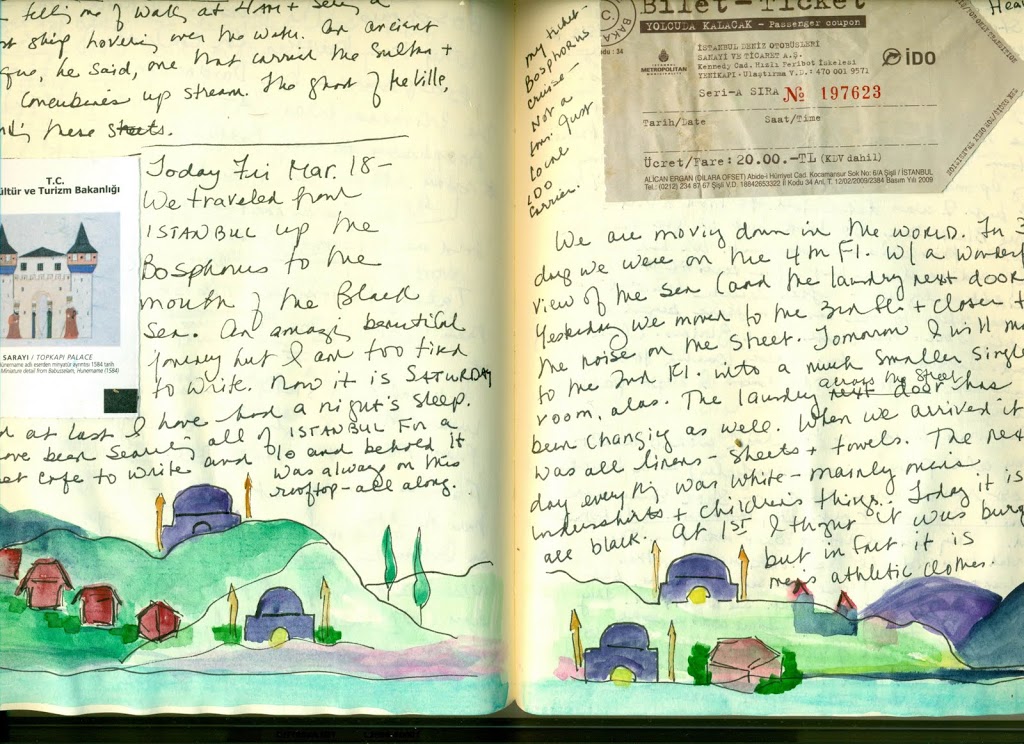 telling me of waking at 4AM + seeing a
ship hovering over the water. An ancient
he said, one that carried the Sultan +
concubines up stream. The ghost of
these streets.
T.C.
ültür ve Turizm Bakanlığı
SARAYI / TOPKAPI PALACE
Hünername adlı eserden minyatür ayrıntısı 1584 tarih
Miniature detail from Babusselam, Hunername (1584)
Today Fri Mar. 18-
We traveled from
ISTANBUL up the
Bosphorus to the
mouth of the Black
Sea. An amazing beautiful
journey but I am too tired
to write. Now it is SATURDAY
at last I have had a night's sleep.
have been searching all of ISTANBUL for a
cafe to write and lo and behold it
was always on this
rooftop-all along.
my ticket-
Bosphorus
cruise-
Not a
tour. Just
local
IDO
carrier.
Bilet-Ticket
YOLCUDA KALACAK - Passenger coupon
BAKA
: 34
İSTANBUL
METROPOLITAN
İSTANBUL DENİZ OTOBÜSLERİ
SANAYİ VE TİCARET A.Ş.
Kennedy Cad. Hızlı Feribot İskelesi
YENİKAPI - Ulaştırma V.D.: 470 001 9571
İDO
Seri-A SIRA No 197623
Tarih/Date Saat/Time
Ücret/Fare: 20.00.-TL (KDV dahil)
ALİCAN ERGAN (DİLARA OFSET) Abide-i Hürriyet Cad. Kocamansur Sok No: 6/A Şişli / İSTANBUL
Tel.: (0212) 234 87 67 Şişli V.D. 18842653322 İl Kodu 34 Anl. T. 12/02/2009/2384 Basım Yılı 2009
We are moving down in the WORLD. In 3
days we were on the 4th Fl. w/ a wonderf
view of the sea (and the laundry next door
Yesterday we moved to the 3rd fl + closer t
the noise on the street. Tomorrow I will m
to the 2nd Fl. into a much smaller single
room, alas. The laundry next door across the street has
been changing as well. When we arrived it
was all linens- sheets + towels. The nex
day everything was white- mainly men's
undershirts + children's things. Today it is
all black. At 1st I thought it was burq
but in fact it is
men's athletic clothes.